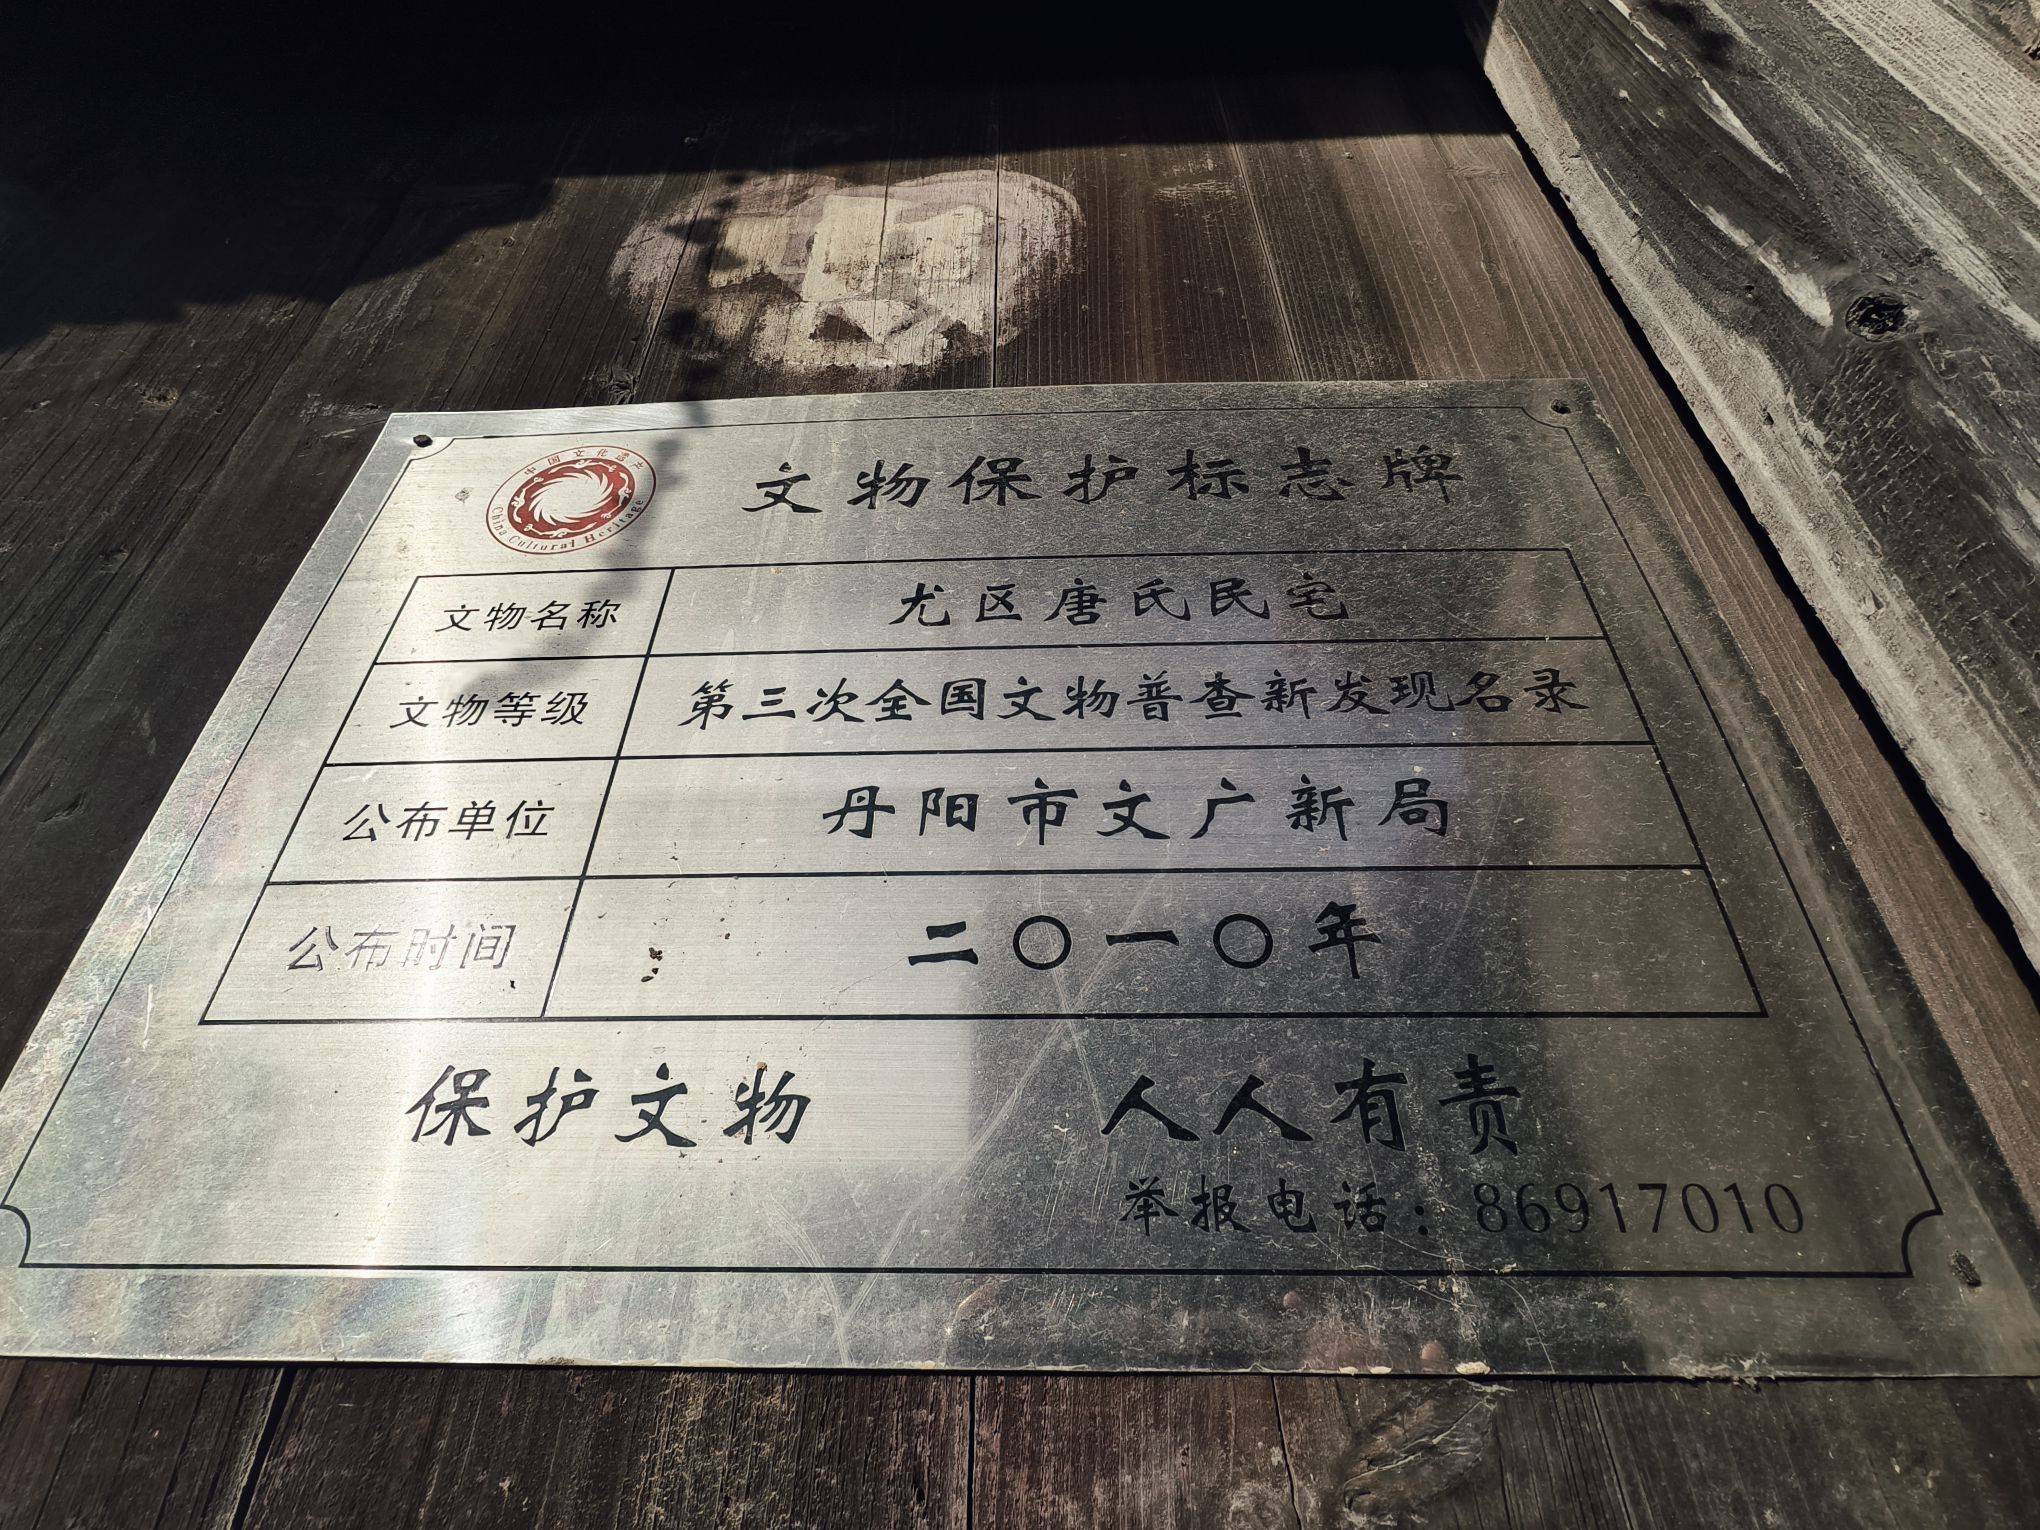 中国文化遗产
China Cultural Heritage
文物保护标志牌
文物名称 尤区唐氏民宅
文物等级 第三次全国文物普查新发现名录
公布单位 丹阳市文广新局
公布时间 二〇一〇年
保护文物 人人有责
举报电话：86917010